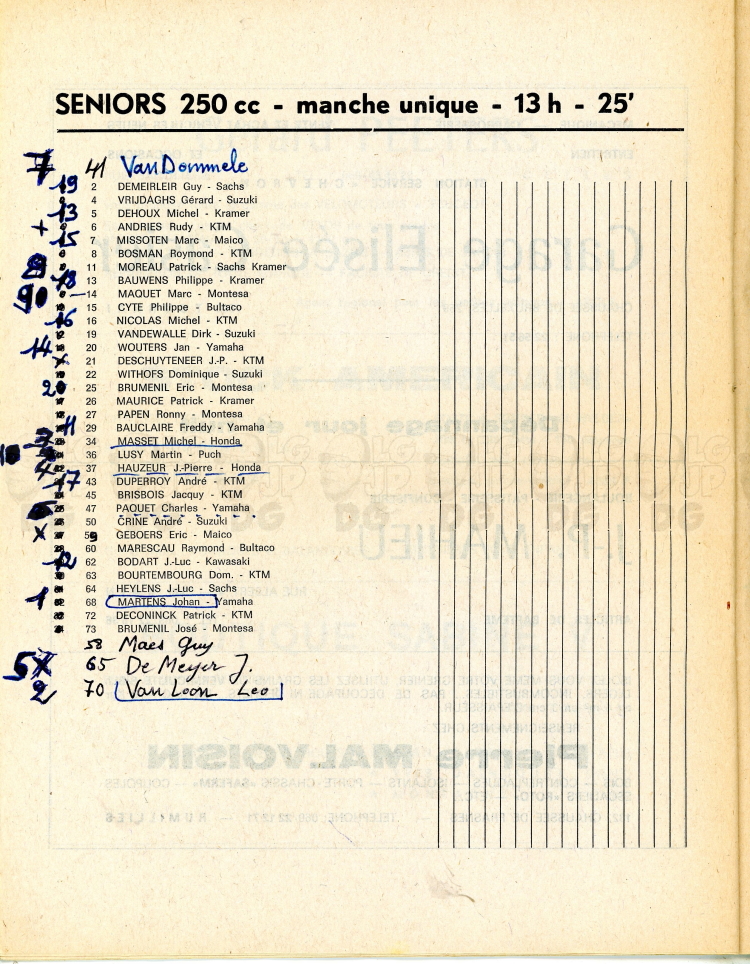 SENIORS 250 cc - manche unique - 13 h - 25'
7 41 VanDommele
19 2 DEMEIRLEIR Guy - Sachs
4 VRIJDAGHS Gérard - Suzuki
13 5 DEHOUX Michel - Kramer
+ 6 ANDRIES Rudy - KTM
15 7 MISSOTEN Marc - Maico
8 BOSMAN Roymond - KTM
11 MOREAU Patrick - Sachs Kramer
18 13 BAUWENS Philippe - Kramer
14 MAQUET Marc - Montesa
15 CYTE Philippe - Bultaco
16 16 NICOLAS Michel - KTM
19 VANDEWALLE Dirk - Suzuki
14 20 WOUTERS Jan - Yamaha
x 21 DESCHUYTENEER J.P. - KTM
22 WITHOFS Dominique - Suzuki
20 25 BRUMENIL Eric - Montesa
26 MAURICE Patrick - Kramer
27 PAPEN Ronny - Montesa
11 29 BAUCLAIRE Freddy - Yamaha
34 MASSET Michel - Honda
36 LUSY Martin - Puch
37 HAUZEUR J.-Pierre - Honda
17 43 DUPERROY André - KTM
45 BRISBOIS Jacquy - KTM
47 PAQUET Charles - Yamaha
50 CRINE André - Suzuki
x 59 GEBOERS Eric - Maico
60 MARESCAU Raymond - Bultaco
12 62 BODART J.-Luc - Kawasaki
63 BOURTEMBOURG Dom. - KTM
64 HEYLENS J.-Luc - Sachs
1 68 MARTENS Johan - Yamaha
72 DECONINCK Patrick - KTM
73 BRUMENIL José - Montesa
58 Maes Guy
5 x 65 De Meyer J.
2 70 Van Loon Leo